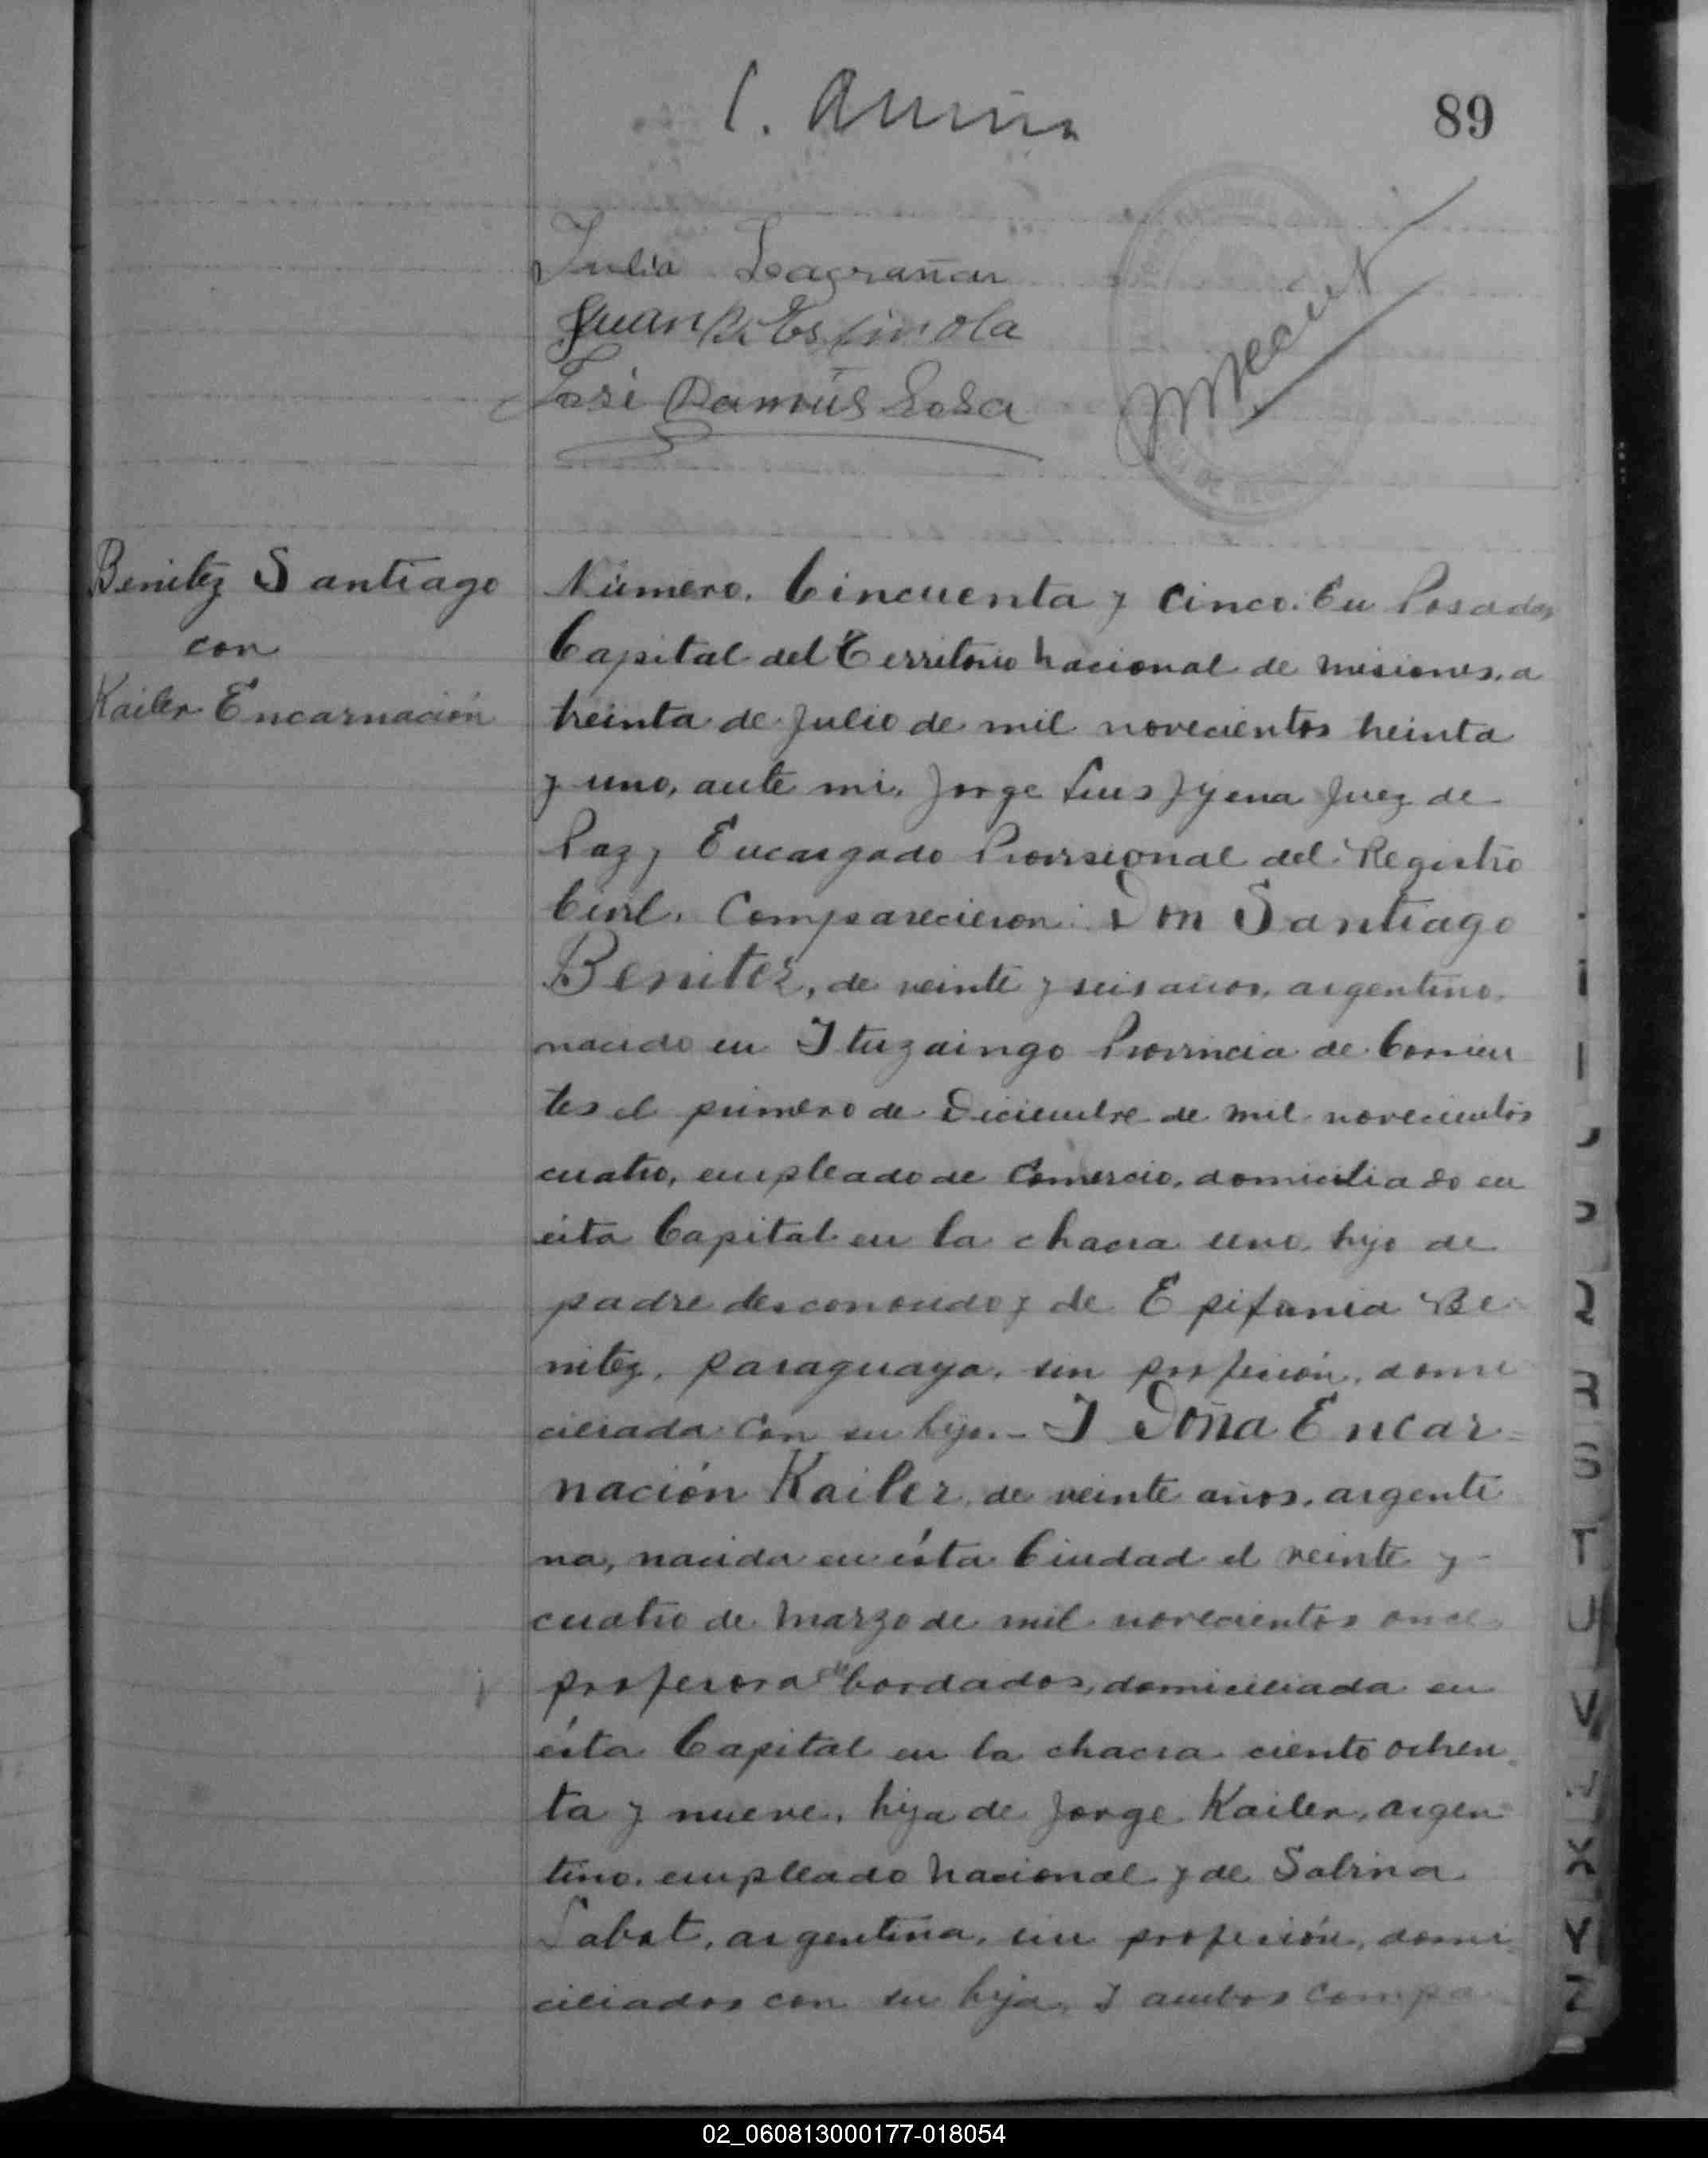 89
Julia
Juan B. Espinola
José Ramón Sosa
Benitez Santiago
con
Kailer Encarnación
Número. Cincuenta y Cinco. En Posadas
Capital del Territorio Nacional de Misiones, a
treinta de Julio de mil novecientos treinta
y uno, ante mi, Jorge Luis Juez de
Paz, Encargado Provisional del Registro
Civil. Comparecieron: Don Santiago
Benitez, de veinte y seis años, argentino,
nacido en Ituzaingo Provincia de Corrien
tes el primero de Diciembre de mil novecientos
cuatro, empleado de Comercio, domiciliado en
ésta Capital en la chacra uno, hijo de
padre desconocido y de Epifania Be
nitez, paraguaya, sin profesión, domi
ciliada con su hijo.- I Doña Encar=
nación Kailer, de veinte años, argenti
na, nacida en ésta Ciudad el veinte y
cuatro de Marzo de mil novecientos once
profesora de bordados, domiciliada en
ésta Capital en la chacra ciento ochen
ta y nueve, hija de Jorge Kailer, argen
tino, empleado Nacional y de Sabina
Sabat, argentina, sin profesión, domi
ciliados con su hija, I ambos compa
R
S
T
U
V
X
Y
Z
02_060813000177-018054